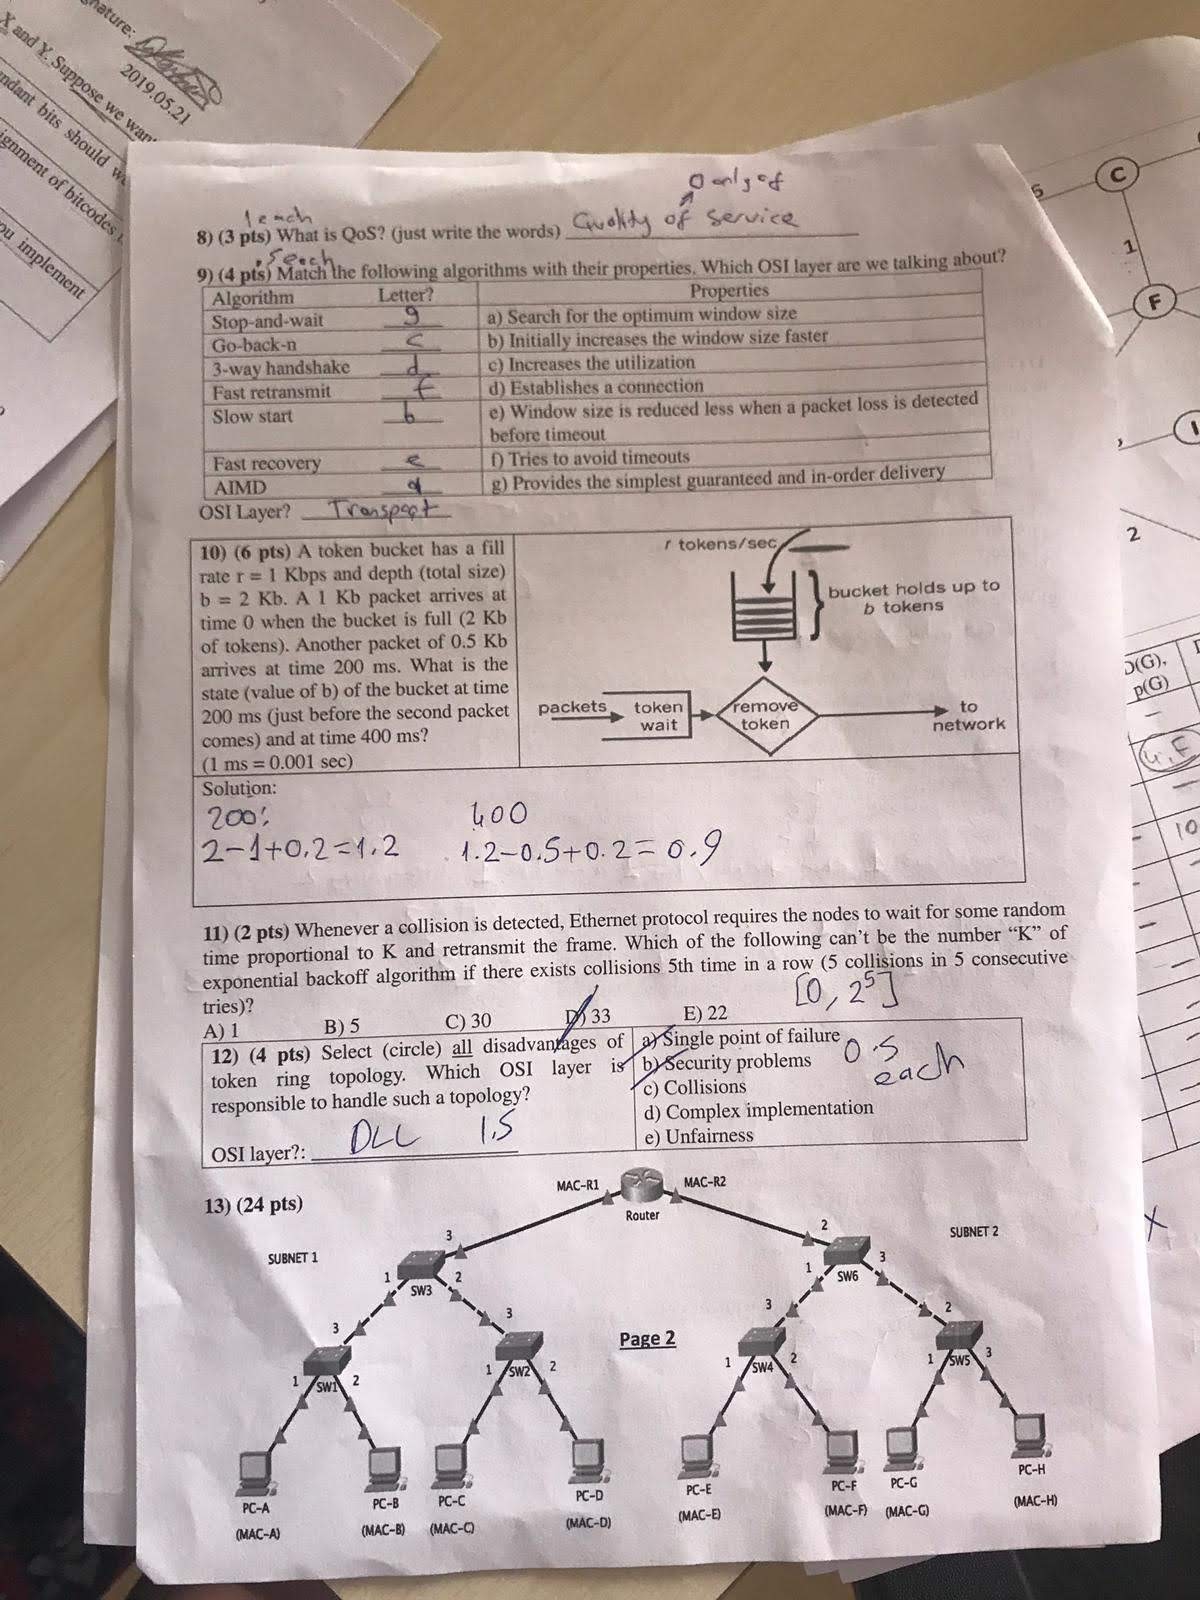 nature:
2019.05.21
X and Y. Suppose we want
ndant bits should
ignment of bitcodes
ou implement
0 only of
1 each
8) (3 pts) What is QoS? (just write the words) Quality of service
.5 each
9) (4 pts) Match the following algorithms with their properties. Which OSI layer are we talking about?
Algorithm Letter? Properties
Stop-and-wait g a) Search for the optimum window size
Go-back-n c b) Initially increases the window size faster
3-way handshake d c) Increases the utilization
Fast retransmit f d) Establishes a connection
Slow start b e) Window size is reduced less when a packet loss is detected
before timeout
Fast recovery e f) Tries to avoid timeouts
AIMD a g) Provides the simplest guaranteed and in-order delivery
OSI Layer? Transport
10) (6 pts) A token bucket has a fill
rate r = 1 Kbps and depth (total size)
b = 2 Kb. A 1 Kb packet arrives at
time 0 when the bucket is full (2 Kb
of tokens). Another packet of 0.5 Kb
arrives at time 200 ms. What is the
state (value of b) of the bucket at time
200 ms (just before the second packet
comes) and at time 400 ms?
(1 ms = 0.001 sec)
r tokens/sec
bucket holds up to
b tokens
packets token wait remove token to network
Solution:
200: 400
2-1+0.2=1.2 1.2-0.5+0.2=0.9
11) (2 pts) Whenever a collision is detected, Ethernet protocol requires the nodes to wait for some random
time proportional to K and retransmit the frame. Which of the following can't be the number “K” of
exponential backoff algorithm if there exists collisions 5th time in a row (5 collisions in 5 consecutive
tries)? [0, 2⁵]
A) 1 B) 5 C) 30 D) 33 E) 22
12) (4 pts) Select (circle) all disadvantages of
token ring topology. Which OSI layer is
responsible to handle such a topology?
OSI layer?: DLL 1.5
a) Single point of failure
b) Security problems
c) Collisions
d) Complex implementation
e) Unfairness
0.5
each
13) (24 pts)
MAC-R1 MAC-R2
Router
SUBNET 1 SUBNET 2
3 2
1 SW3 2 1 SW6 3
3 3 3 2
Page 2
1 SW1 2 1 SW2 2 1 SW4 2 1 SW5 3
PC-A PC-B PC-C PC-D PC-E PC-F PC-G PC-H
(MAC-A) (MAC-B) (MAC-C) (MAC-D) (MAC-E) (MAC-F) (MAC-G) (MAC-H)
5 C
1
F
2
D(G),
p(G)
4,E
10
X